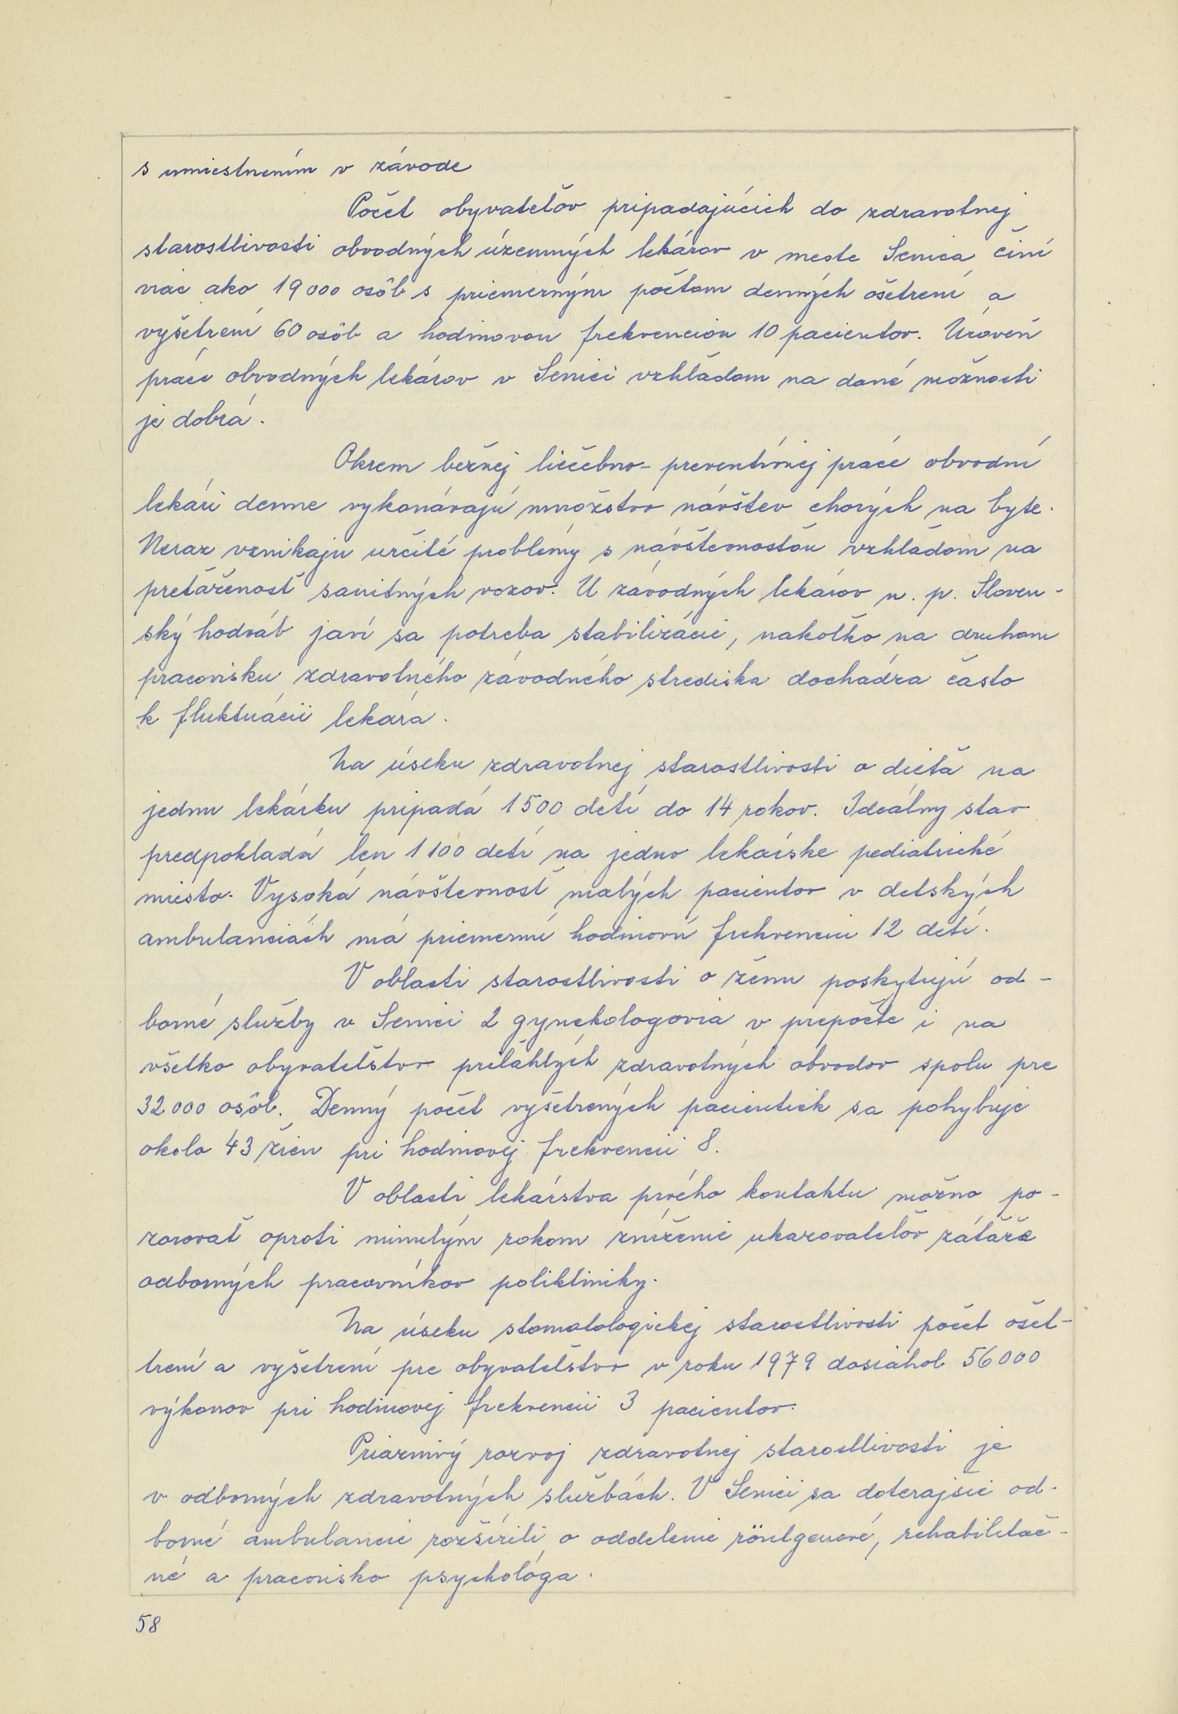 s umiestnením v závode
Počet obyvateľov pripadajúcich do zdravotnej
starostlivosti obvodných územných lekárov v meste Senica činí
viac ako 19 000 osôb s priemerným počtom denných ošetrení a
vyšetrení 60 osôb a hodinovou frekvenciou 10 pacientov. Úroveň
práce obvodných lekárov v Senici vzhľadom na dané možnosti
je dobrá.
Okrem bežnej liečebno-preventívnej práce obvodní
lekári denne vykonávajú množstvo návštev chorých na byte.
Neraz vznikajú určité problémy s návštevnosťou vzhľadom na
preťaženosť sanitných vozov. U závodných lekárov n. p. Sloven-
ský hodváb javí sa potreba stabilizácie, nakoľko na druhom
pracovisku zdravotného závodného strediska dochádza často
k fluktuácii lekára.
Na úseku zdravotnej starostlivosti o dieťa na
jednu lekárku pripadá 1500 detí do 14 rokov. Ideálny stav
predpokladá len 1100 detí na jedno lekárske pediatrické
miesto. Vysoká návštevnosť malých pacientov v detských
ambulanciách má priemernú hodinovú frekvenciu 12 detí.
V oblasti starostlivosti o ženu poskytujú od-
borné služby v Senici 2 gynekologovia v prepočte i na
všetko obyvateľstvo priľahlých zdravotných obvodov spolu pre
32.000 osôb. Denný počet vyšetrených pacientiek sa pohybuje
okolo 43 žien pri hodinovej frekvencii 8.
V oblasti lekárstva prvého kontaktu možno po-
zorovať oproti minulým rokom zníženie ukazovateľov záťaže
odborných pracovníkov polikliniky.
Na úseku stomatologickej starostlivosti počet ošet-
trení a vyšetrení pre obyvateľstvo v roku 1979 dosiahol 56 000
výkonov pri hodinovej frekvencii 3 pacientov.
Priaznivý rozvoj zdravotnej starostlivosti je
v odborných zdravotných službách. V Senici sa doterajšie od-
borné ambulancie rozšírili o oddelenie röntgenové, rehabilitač-
né a pracovisko psychológa.
58